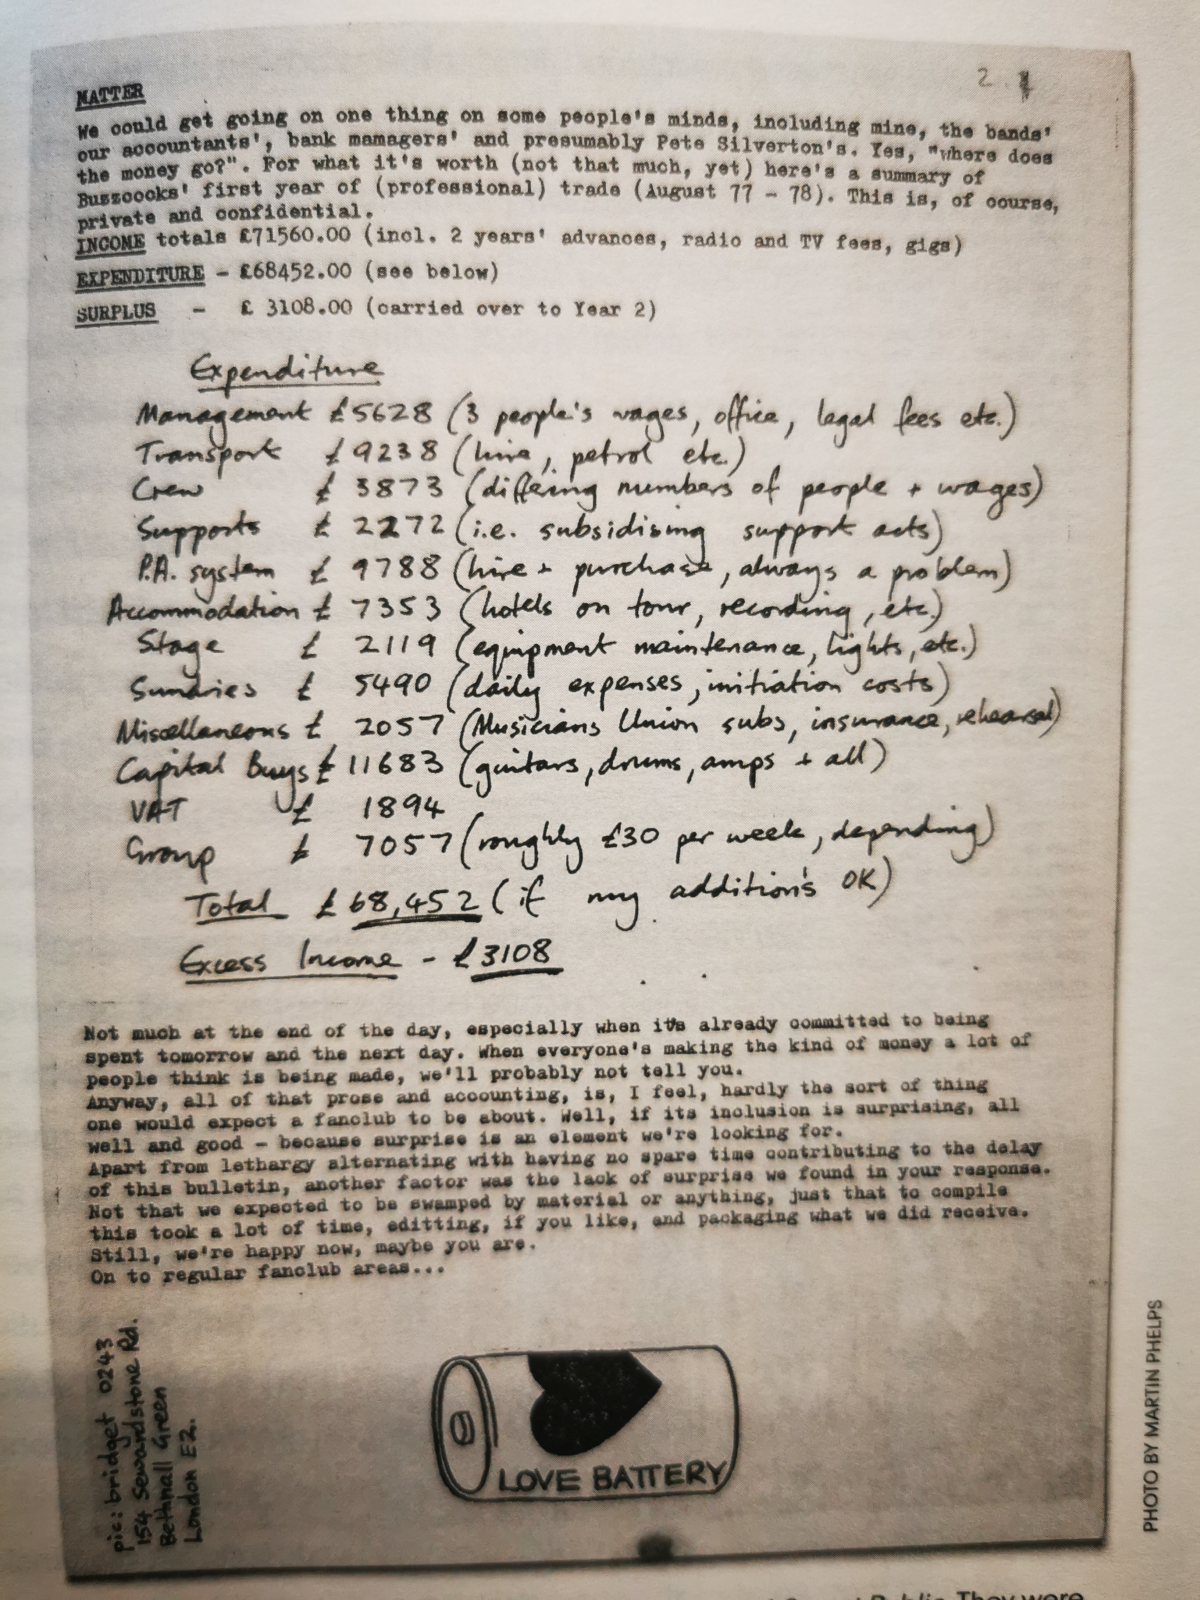 2.1
MATTER
We could get going on one thing on some people's minds, including mine, the bands'
our accountants', bank mamagers' and presumably Pete Silverton's. Yes, "where does
the money go?". For what it's worth (not that much, yet) here's a summary of
Buzzcocks' first year of (professional) trade (August 77 - 78). This is, of course,
private and confidential.
INCOME totals £71560.00 (incl. 2 years' advances, radio and TV fees, gigs)
EXPENDITURE - £68452.00 (see below)
SURPLUS - £ 3108.00 (carried over to Year 2)
Expenditure
Management £5628 (3 people's wages, office, legal fees etc.)
Transport £9238 (hire, petrol etc.)
Crew £ 3873 (differing numbers of people + wages)
Supports £ 2272 (i.e. subsidising support acts)
P.A. system £ 9788 (hire + purchase, always a problem)
Accommodation £ 7353 (hotels on tour, recording, etc.)
Stage £ 2119 (equipment maintenance, lights, etc.)
Sundries £ 5490 (daily expenses, initiation costs)
Miscellaneous £ 2057 (Musicians Union subs, insurance, rehearsal)
Capital Buys £ 11683 (guitars, drums, amps + all)
VAT £ 1894
Group £ 7057 (roughly £30 per week, depending)
Total £68,452 (if my addition's OK)
Excess Income - £3108
Not much at the end of the day, especially when it's already committed to being
spent tomorrow and the next day. When everyone's making the kind of money a lot of
people think is being made, we'll probably not tell you.
Anyway, all of that prose and accounting, is, I feel, hardly the sort of thing
one would expect a fanclub to be about. Well, if its inclusion is surprising, all
well and good - because surprise is an element we're looking for.
Apart from lethargy alternating with having no spare time contributing to the delay
of this bulletin, another factor was the lack of surprise we found in your response.
Not that we expected to be swamped by material or anything, just that to compile
this took a lot of time, editting, if you like, and packaging what we did receive.
Still, we're happy now, maybe you are.
On to regular fanclub areas...
pic: bridget 0243
154 Sewardstone Rd.
Bethnall Green
London E2.
LOVE BATTERY
PHOTO BY MARTIN PHELPS
They were